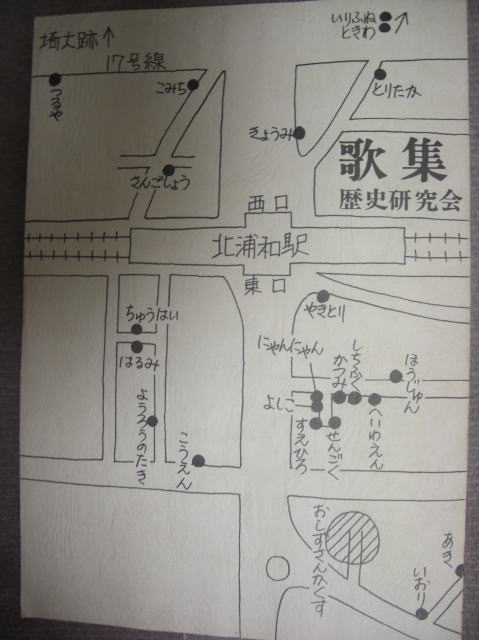 いりふね
ときわ
埼大跡↑
17号線
つるや
こみち
とりたか
きょうみ
歌集
歴史研究会
さんごしょう
西口
北浦和駅
東口
やきとり
ちゅうはい
はるみ
にゃんにゃん
しちふく
かつみ
ほうじゅん
よしこ
へいわえん
ようろうのたき
すえひろ
せんごく
こうえん
おしずさんかくす
あき
いおり